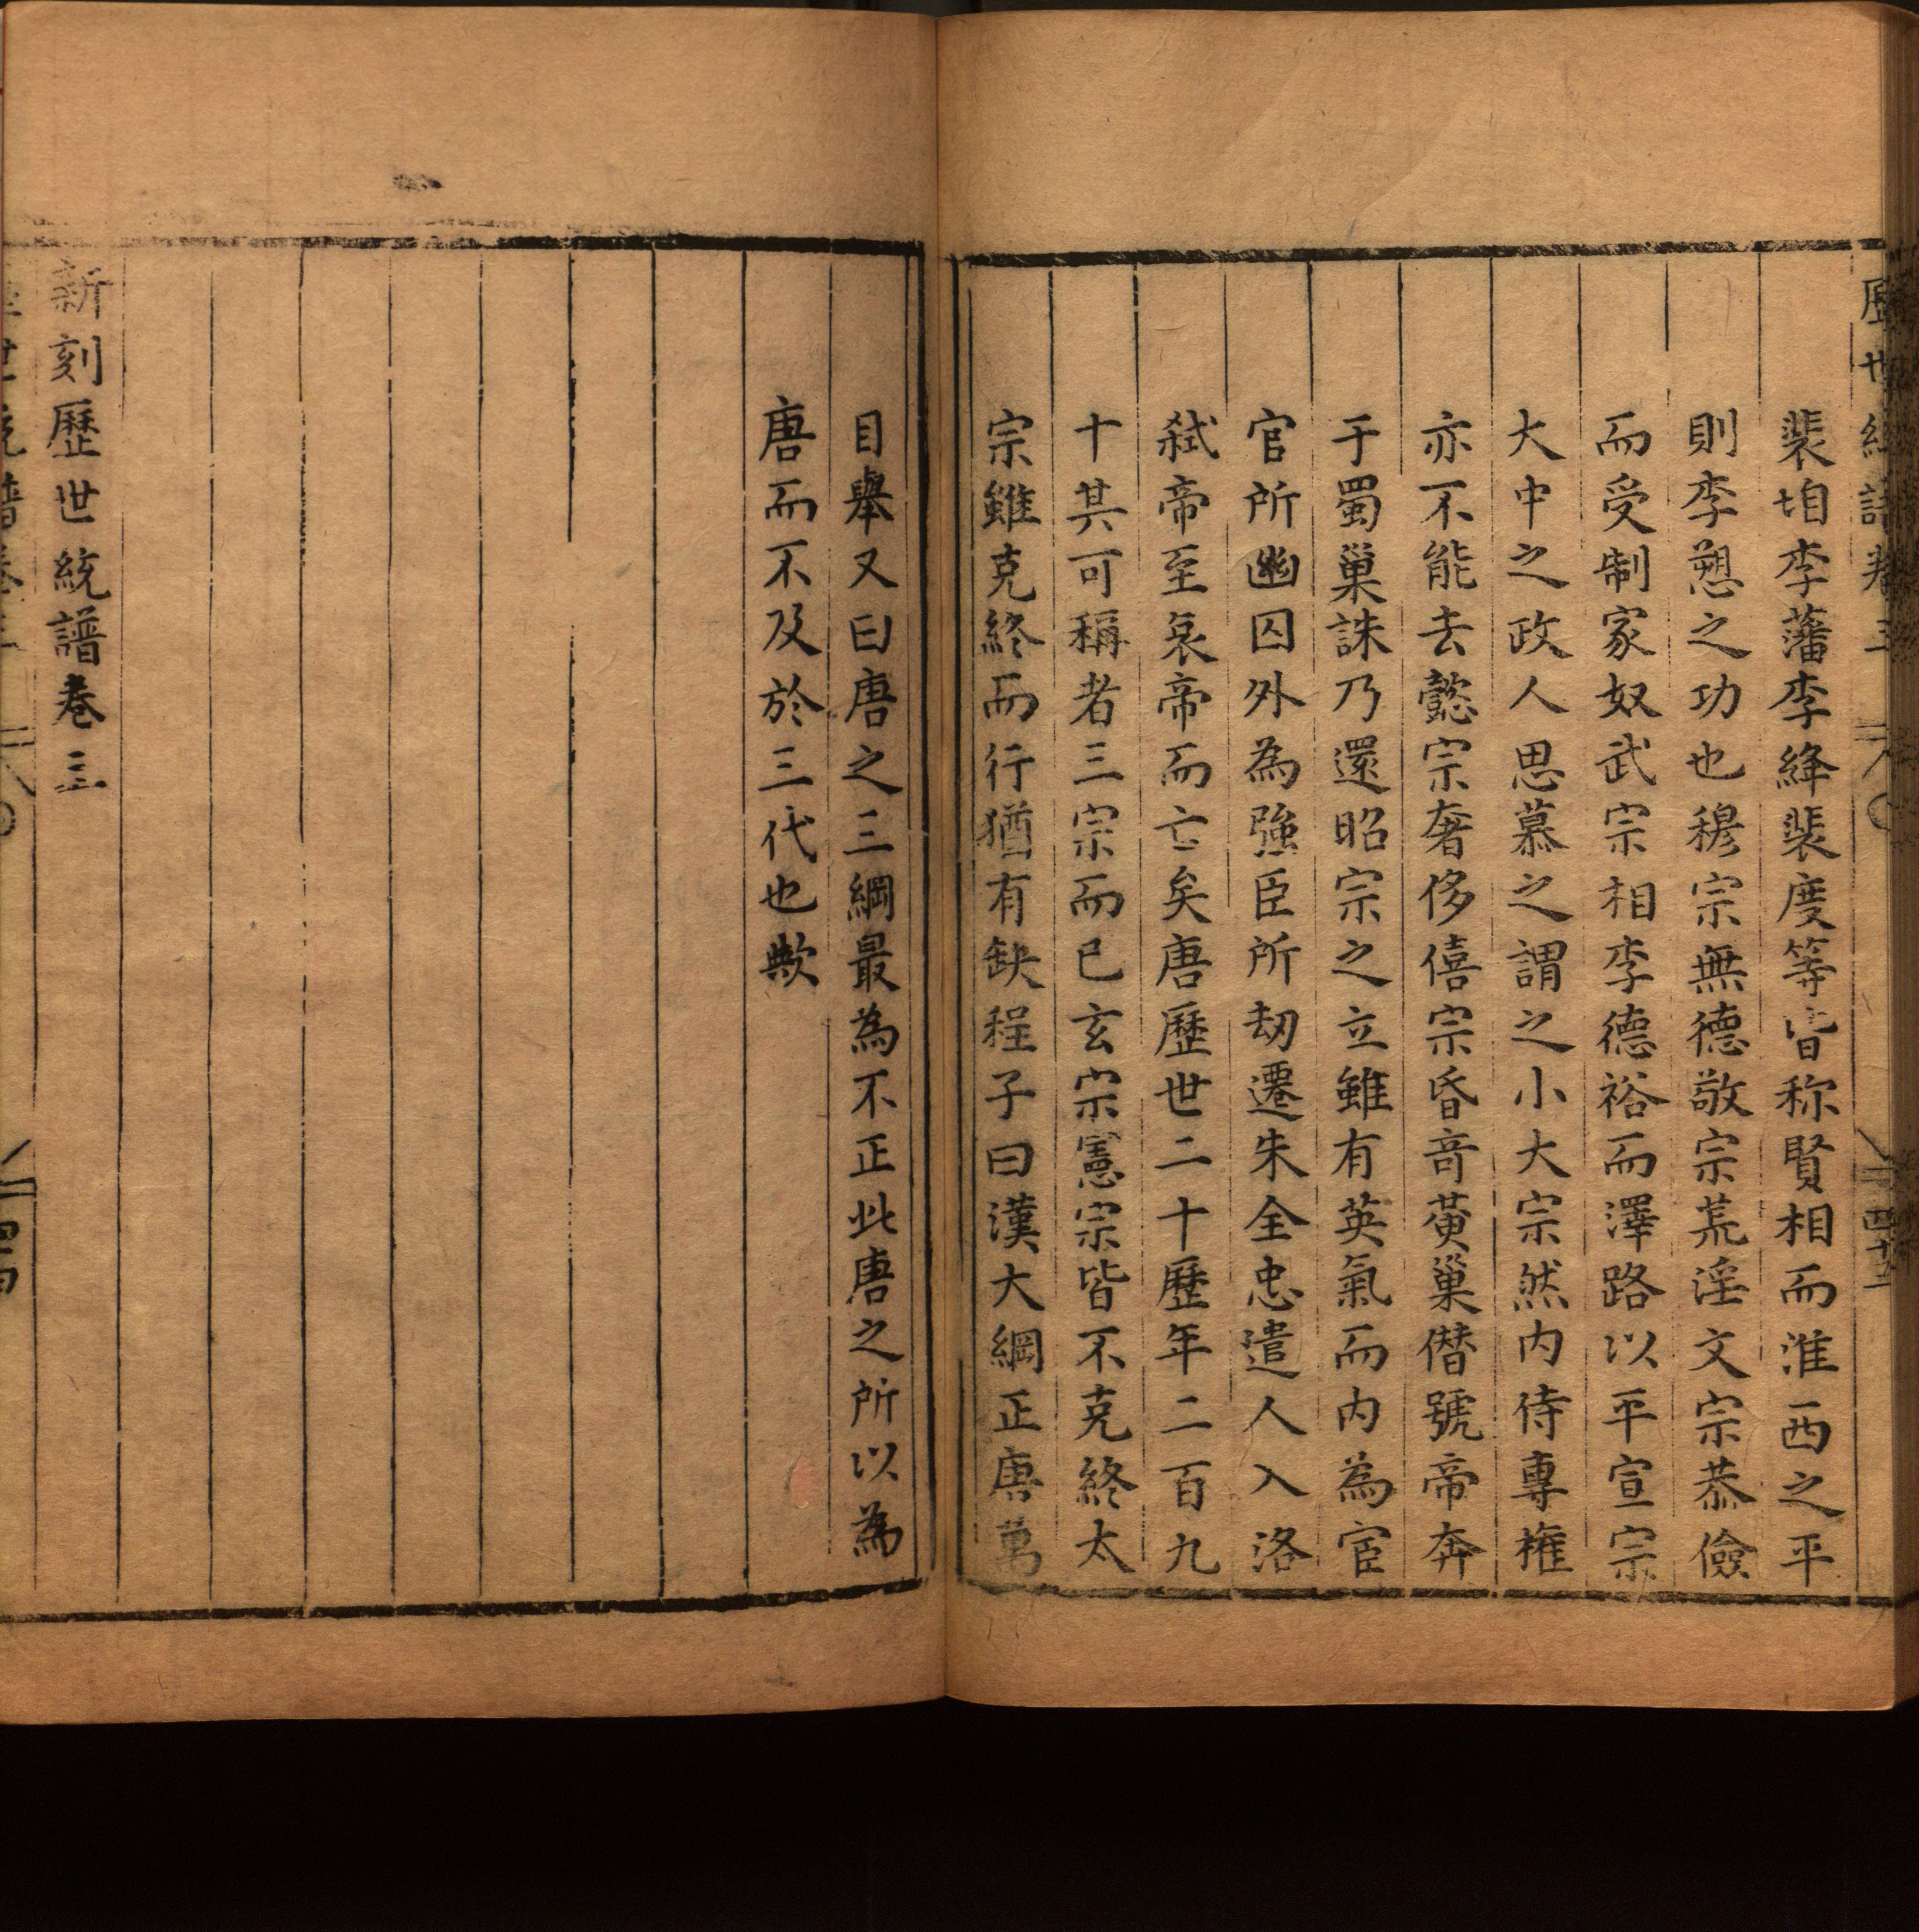 裴垍李藩李絳裴度等皆称賢相而淮西之平
則李愬之功也穆宗無德敬宗荒淫文宗恭儉
而受制家奴武宗相李德裕而澤路以平宣宗
大中之政人思慕之謂之小大宗然内侍專權
亦不能去懿宗奢侈僖宗昏音黄巢僣號帝奔
于蜀巢誅乃還昭宗之立雖有英氣而内為宦
官所幽囚外為強臣所刼遷朱全忠遣人入洛
弑帝至哀帝而亡矣唐歷世二十歷年二百九
十其可稱者三宗而已玄宗憲宗皆不克終太
宗雖克終而行猶有缺程子曰漢大綱正唐萬
目舉又曰唐之三綱最為不正此唐之所以為
唐而不及於三代也歟
新刻歷世統譜卷三